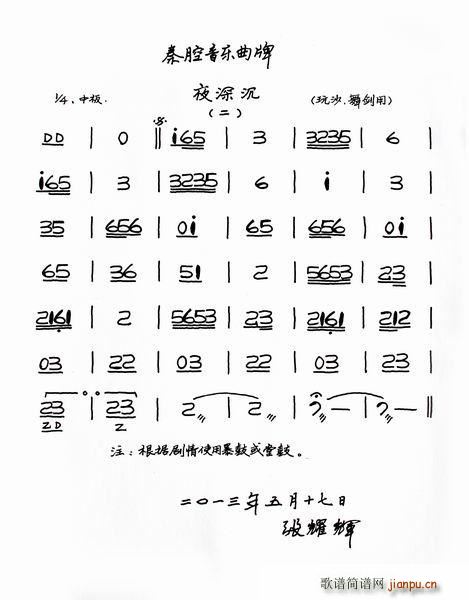 秦腔音乐曲牌
夜深沉
1/4、中板. (二) (玩沙.舞剑用)
DD | 0 ‖ i65 | 3 | 3235 | 6 |
i65 | 3 | 3235 | 6 | i | 3 |
35 | 656 | 0i | 65 | 656 | 0i |
65 | 36 | 51 | 2 | 5653 | 23 |
2161 | 2 | 5653 | 23 | 2161 | 212 |
03 | 22 | 03 | 22 | 03 | 23 |
23 | 23 | 2 | 2 | 2 — | 2 — ‖
ZD Z
注：根据剧情使用暴鼓或堂鼓。
二〇一三年五月十七日
张耀辉
歌谱简谱网
jianpu.cn